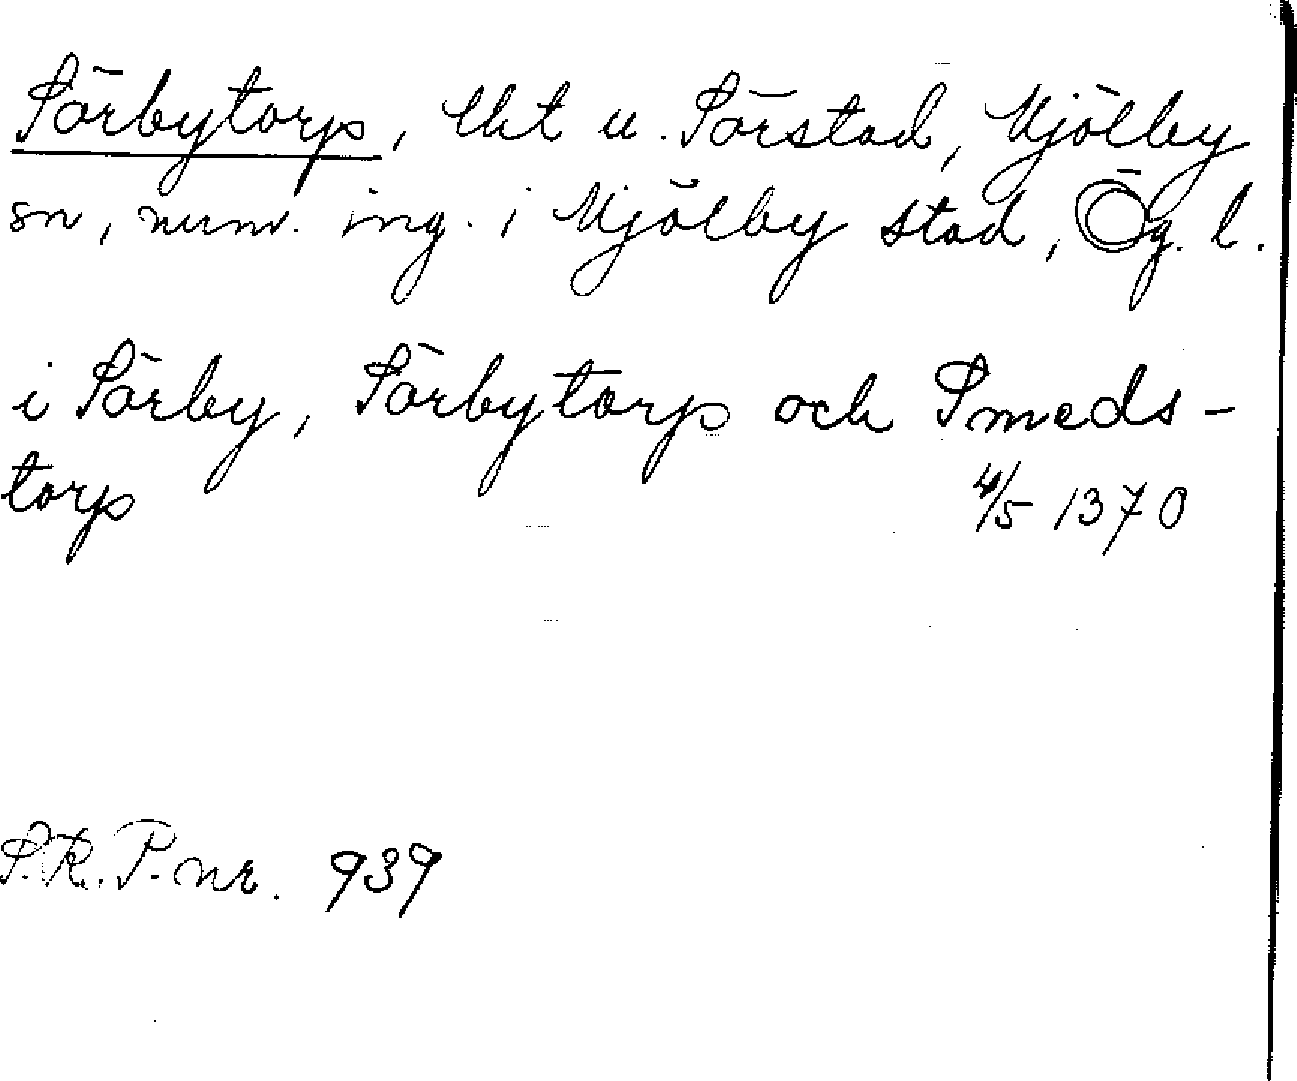 Sörbytorp, lht u. Sörstad, Mjölby
sn, numv. ing. i Mjölby stad, Ög. l.
i Sörby, Sörbytorp och Smeds-
torp 4/5 1370
S.R.P. nr. 939